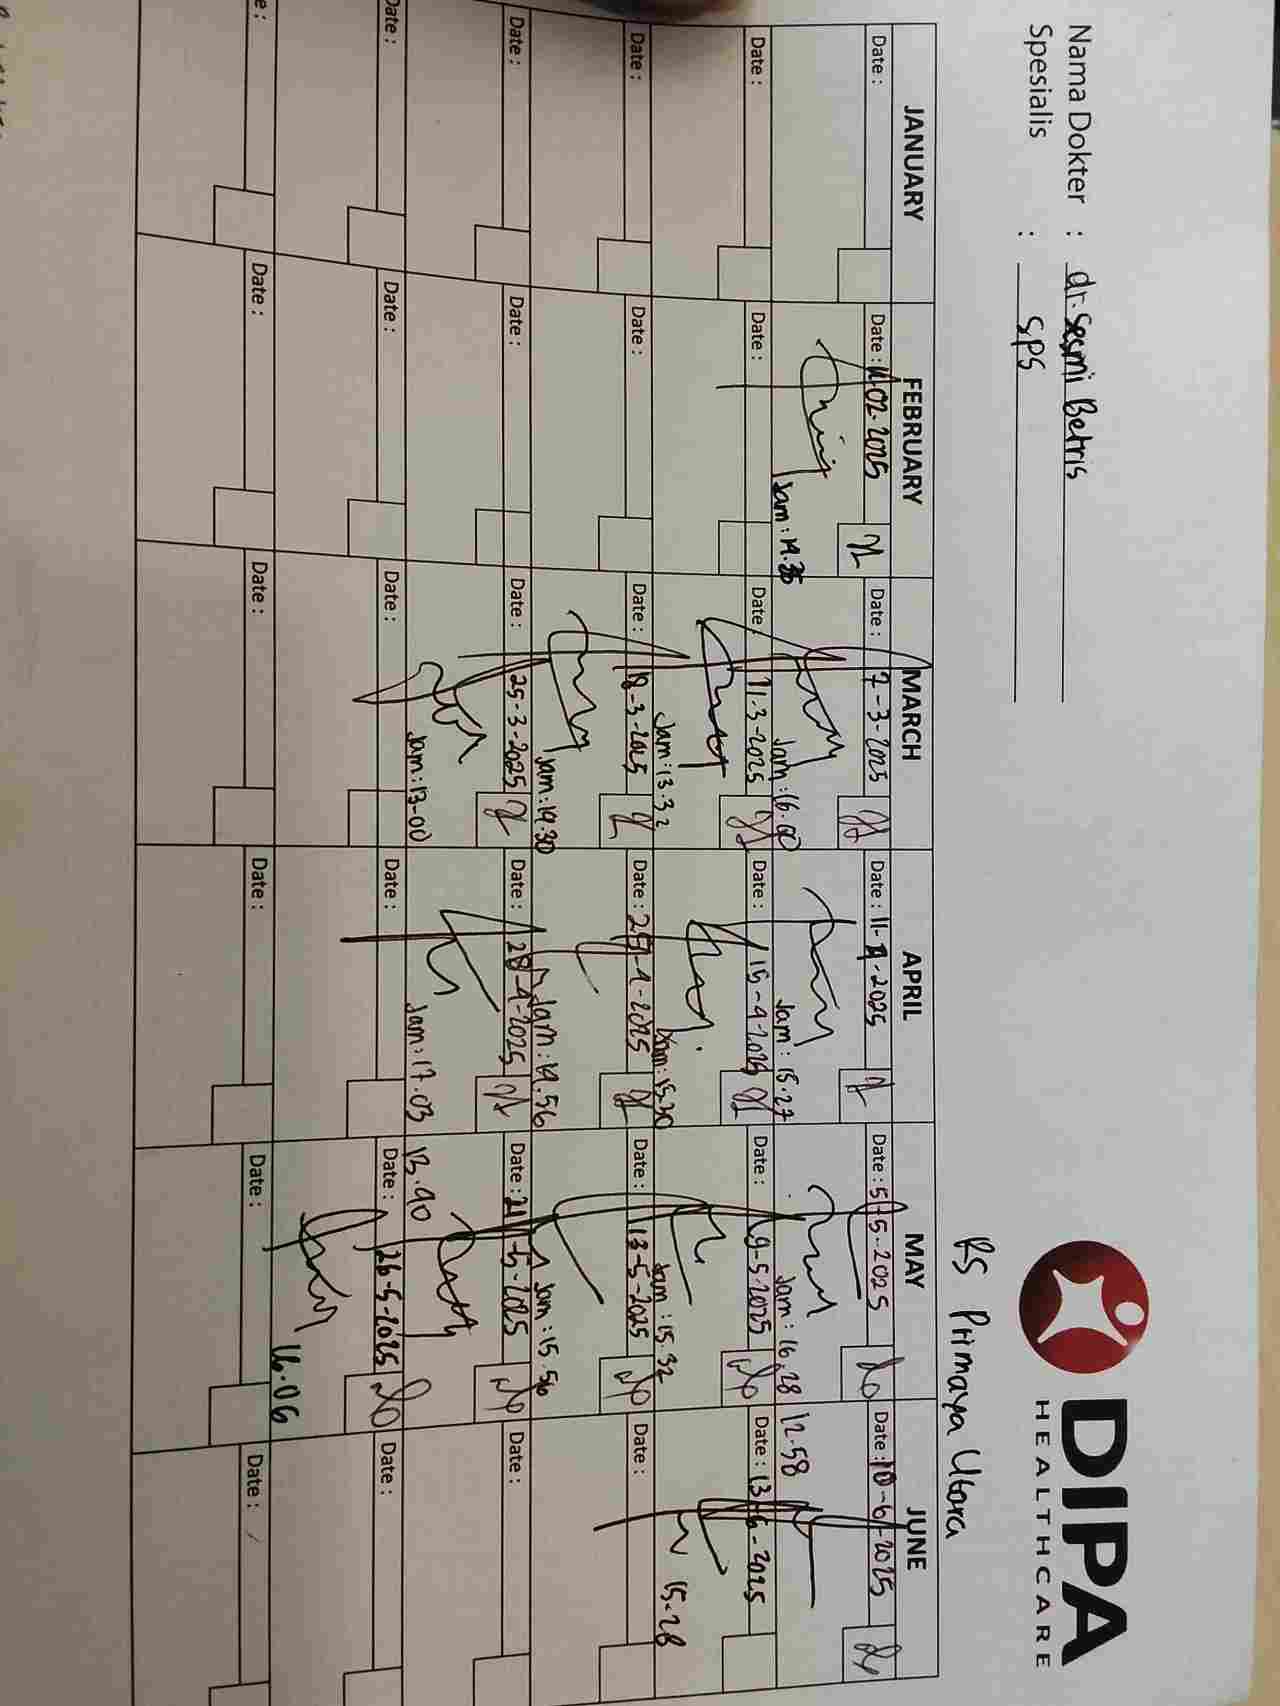 DIPA
HEALTHCARE
Nama Dokter : dr. Sesmi Betris
Spesialis : SPS
RS Primaya Utara
JANUARY FEBRUARY MARCH APRIL MAY JUNE
Date : Date : 11.02.2025 Date : 7-3-2025 Date : 11-4-2025 Date : 5-5-2025 Date : 10-6-2025
Jam : 14.35 Jam : 16.00 Jam : 15.27 Jam : 16.28 12.58
Date : Date : Date : 11-3-2025 Date : 15-4-2025 Date : 9-5-2025 Date : 13-6-2025
Jam : 13.32 Jam : 15.30 Jam : 15.32 15.28
Date : Date : Date : 18-3-2025 Date : 25-4-2025 Date : 13-5-2025 Date :
Jam : 14.30 Jam : 14.56 Jam : 15.56
Date : Date : Date : 25-3-2025 Date : 28-4-2025 Date : 21-5-2025 Date :
Jam : 13-00 Jam : 17.03 13.40
Date : Date : Date : Date : Date : 26-5-2025 Date :
16.06
Date : Date : Date : Date : Date : Date :